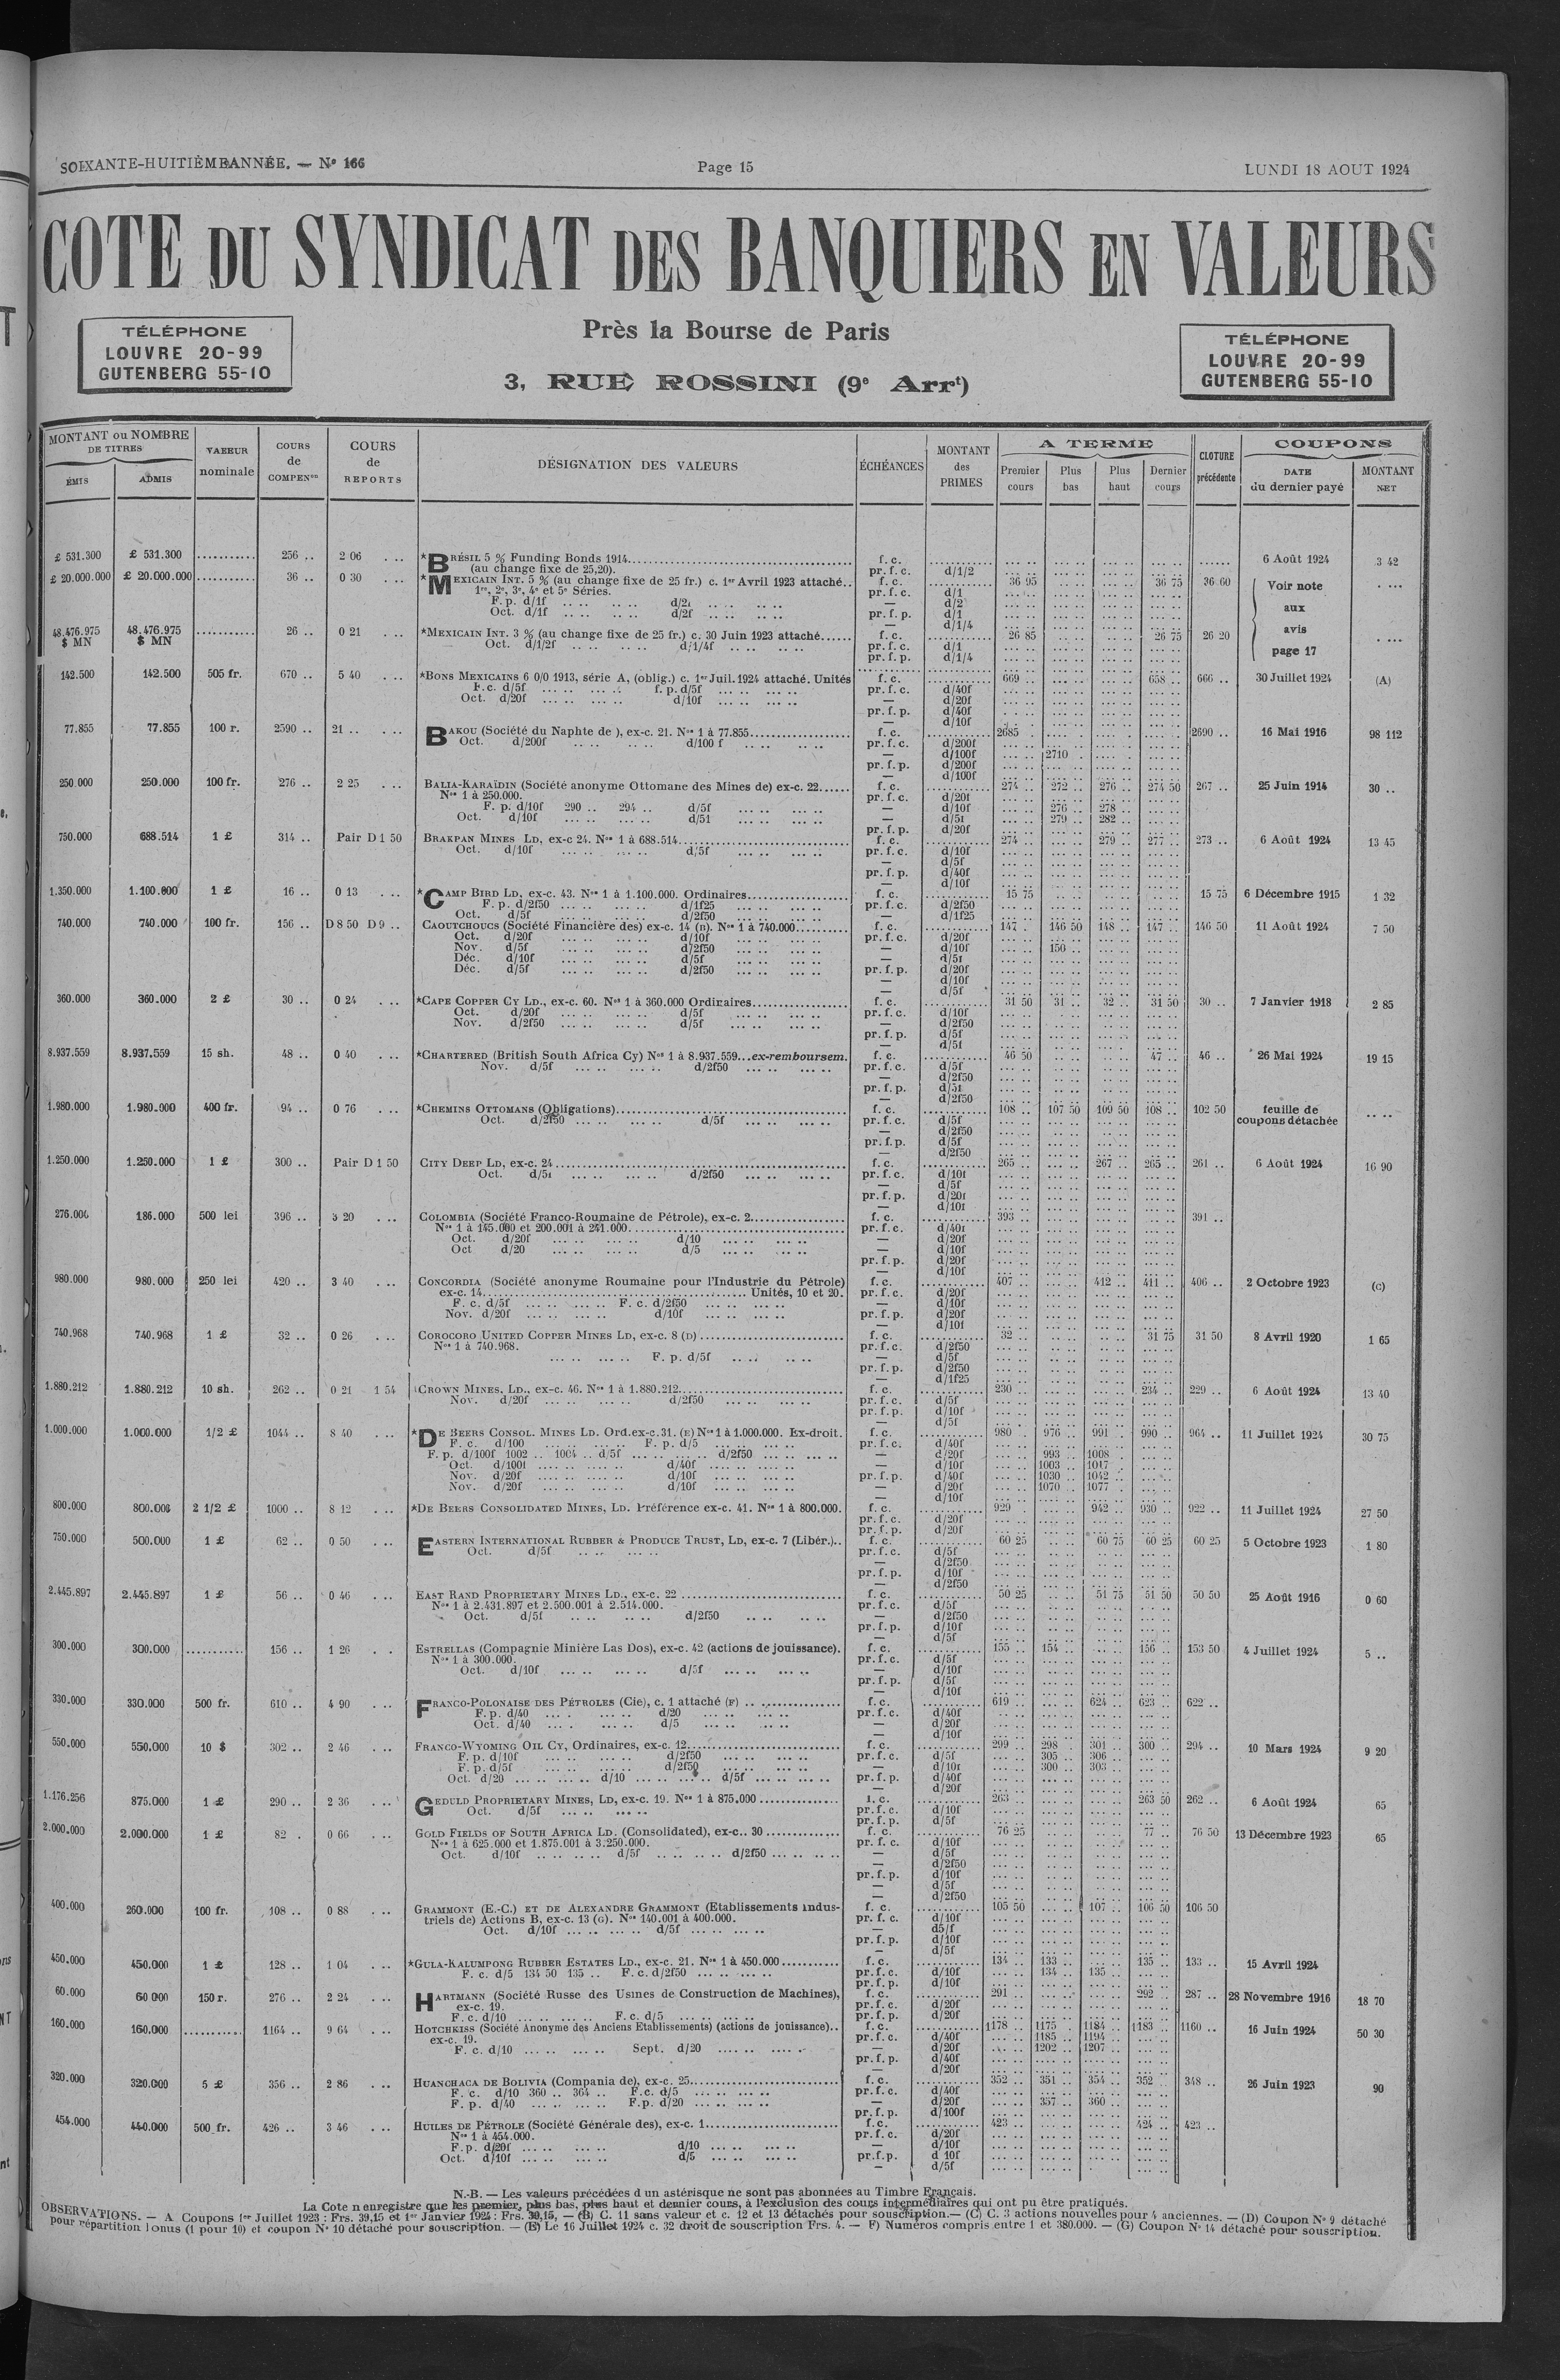 SOIXANTE-HUITIÈME ANNÉE. — N° 166
Page 15
LUNDI 18 AOUT 1924
COTE DU SYNDICAT DES BANQUIERS EN VALEURS
TÉLÉPHONE
LOUVRE 20-99
GUTENBERG 55-10
Près la Bourse de Paris
3, RUE ROSSINI (9e Arrt)
TÉLÉPHONE
LOUVRE 20-99
GUTENBERG 55-10
MONTANT ou NOMBRE DE TITRES
ÉMIS
ADMIS
VALEUR nominale
COURS de COMPENon
COURS de REPORTS
DÉSIGNATION DES VALEURS
ÉCHÉANCES
MONTANT des PRIMES
A TERME
Premier cours
Plus bas
Plus haut
Dernier cours
CLOTURE précédente
COUPONS
DATE du dernier payé
MONTANT NET
£ 531.300 £ 531.300 256 .. 2 06 *BRÉSIL 5 % Funding Bonds 1914 f. c. 6 Août 1924 3 42
(au change fixe de 25,20). pr. f. c. d/1/2
£ 20.000.000 £ 20.000.000 36 .. 0 30 *MEXICAIN INT. 5 % (au change fixe de 25 fr.) c. 1er Avril 1923 attaché.. f. c. 36 95 36 75 36 60 Voir note aux avis page 17
1re, 2e, 3e, 4e et 5e Séries. pr. f. c. d/1
F. p. d/1f — d/2
Oct. d/1f d/2f pr. f. p. d/1
— d/1/4
48.476.975 $ MN 48.476.975 $ MN 26 .. 0 21 *MEXICAIN INT. 3 % (au change fixe de 25 fr.) c. 30 Juin 1923 attaché f. c. 26 85 26 75 26 20
Oct. d/1/2f d/1/4f pr. f. c. d/1
pr. f. p. d/1/4
142.500 142.500 505 fr. 670 .. 5 40 *BONS MEXICAINS 6 0/0 1913, série A, (oblig.) c. 1er Juil. 1924 attaché. Unités f. c. 669 .. 658 .. 666 .. 30 Juillet 1924 (A)
F. c. d/5f f. p. d/5f pr. f. c. d/40f
Oct. d/20f d/10f — d/20f
pr. f. p. d/40f
— d/10f
77.855 77.855 100 r. 2590 .. 21 .. BAKOU (Société du Naphte de ), ex-c. 21. Nos 1 à 77.855 f. c. 2685 2690 .. 16 Mai 1916 98 112
Oct. d/200f d/100 f pr. f. c. d/200f
— d/100f 2710
pr. f. p. d/200f
— d/100f
250.000 250.000 100 fr. 276 .. 2 25 BALIA-KARAÏDIN (Société anonyme Ottomane des Mines de) ex-c. 22 f. c. 274 .. 272 .. 276 .. 274 50 267 .. 25 Juin 1914 30 ..
Nos 1 à 250.000. pr. f. c. d/20f
F. p. d/10f 290 .. 294 .. d/5f — d/10f 276 .. 278 ..
Oct. d/10f — d/5f 279 .. 282 ..
pr. f. p. d/20f
750.000 688.514 1 £ 314 .. Pair D 1 50 BRAKPAN MINES LD, ex-c 24. Nos 1 à 688.514 f. c. 274 .. 279 .. 277 .. 273 .. 6 Août 1924 13 45
Oct. d/10f d/5f pr. f. c. d/10f
— d/5f
pr. f. p. d/40f
— d/10f
1.350.000 1.100.000 1 £ 16 .. 0 13 *CAMP BIRD LD, ex-c. 43. Nos 1 à 1.100.000. Ordinaires f. c. 15 75 15 75 6 Décembre 1915 1 32
F. p. d/2f50 d/1f25 pr. f. c. d/2f50
Oct. d/5f d/2f50 — d/1f25
740.000 740.000 100 fr. 156 .. D 8 50 D 9 .. CAOUTCHOUCS (Société Financière des) ex-c. 14 (B). Nos 1 à 740.000 f. c. 147 . 146 50 148 .. 147 .. 146 50 11 Août 1924 7 50
Oct. d/20f d/10f pr. f. c. d/20f
Nov. d/5f d/2f50 — d/10f 150 ..
Déc. d/10f d/5f — d/5f
Déc. d/5f d/2f50 pr. f. p. d/20f
— d/10f
— d/5f
360.000 360.000 2 £ 30 .. 0 24 *CAPE COPPER CY LD., ex-c. 60. Nos 1 à 360.000 Ordinaires f. c. 31 50 31 .. 32 .. 31 50 30 .. 7 Janvier 1918 2 85
Oct. d/20f d/5f pr. f. c. d/10f
Nov. d/2f50 d/5f — d/2f50
pr. f. p. d/5f
— d/5f
8.937.559 8.937.559 15 sh. 48 .. 0 40 *CHARTERED (British South Africa Cy) Nos 1 à 8.937.559...ex-remboursem. f. c. 46 50 47 .. 46 .. 26 Mai 1924 19 15
Nov. d/5f d/2f50 pr. f. c. d/5f
— d/2f50
pr. f. p. d/5f
— d/2f50
1.980.000 1.980.000 400 fr. 94 .. 0 76 *CHEMINS OTTOMANS (Obligations) f. c. 108 .. 107 50 109 50 108 .. 102 50 feuille de coupons détachée
Oct. d/2f50 d/5f pr. f. c. d/5f
— d/2f50
pr. f. p. d/5f
— d/2f50
1.250.000 1.250.000 1 £ 300 .. Pair D 1 50 CITY DEEP LD, ex-c. 24 f. c. 265 .. 267 .. 265 .. 261 .. 6 Août 1924 16 90
Oct. d/5f d/2f50 pr. f. c. d/10f
— d/5f
pr. f. p. d/20f
— d/10f
276.000 186.000 500 lei 396 .. 3 20 COLOMBIA (Société Franco-Roumaine de Pétrole), ex-c. 2 f. c. 393 .. 391 ..
Nos 1 à 145.000 et 200.001 à 241.000 pr. f. c. d/40f
Oct. d/20f d/10 — d/20f
Oct d/20 d/5 — d/10f
pr. f. p. d/20f
— d/10f
980.000 980.000 250 lei 420 .. 3 40 CONCORDIA (Société anonyme Roumaine pour l'Industrie du Pétrole) f. c. 407 .. 412 .. 411 .. 406 .. 2 Octobre 1923 (C)
ex-c. 14 Unités, 10 et 20. pr. f. c. d/20f
F. c. d/5f F. c. d/2f50 — d/10f
Nov. d/20f d/10f pr. f. p. d/20f
— d/10f
740.968 740.968 1 £ 32 .. 0 26 COROCORO UNITED COPPER MINES LD, ex-c. 8 (D) f. c. 32 .. 31 75 31 50 8 Avril 1920 1 65
Nos 1 à 740.968. pr. f. c. d/2f50
F. p. d/5f — d/5f
pr. f. p. d/2f50
— d/1f25
1.880.212 1.880.212 10 sh. 262 .. 0 21 1 54 CROWN MINES, LD., ex-c. 46. Nos 1 à 1.880.212 f. c. 230 .. 234 .. 229 .. 6 Août 1924 13 40
Nov. d/20f d/2f50 pr. f. c. d/5f
pr. f. p. d/10f
— d/5f
1.000.000 1.000.000 1/2 £ 1044 .. 8 40 *DE BEERS CONSOL. MINES LD. Ord. ex-c. 31. (E) Nos 1 à 1.000.000. Ex-droit. f. c. 980 .. 976 .. 991 . 990 .. 964 .. 11 Juillet 1924 30 75
F. c. d/100 F. p. d/5 pr. f. c. d/40f
F. p. d/100f 1002 .. 1004 .. d/5f d/2f50 — d/20f 993 .. 1008 .
Oct. d/100f d/40f — d/10f 1003 .. 1017
Nov. d/20f d/10f pr. f. p. d/40f 1030 .. 1042 ..
Nov. d/20f d/10f — d/20f 1070 .. 1077 .
— d/10f
800.000 800.000 2 1/2 £ 1000 .. 8 12 *DE BEERS CONSOLIDATED MINES, LD. Préférence ex-c. 41. Nos 1 à 800.000. f. c. 929 .. 942 .. 930 .. 922 .. 11 Juillet 1924 27 50
pr. f. c. d/20f
pr. f. p. d/20f
750.000 500.000 1 £ 62 .. 0 50 EASTERN INTERNATIONAL RUBBER & PRODUCE TRUST, LD, ex-c. 7 (Libér.).. f. c. 60 25 60 75 60 25 60 25 5 Octobre 1923 1 80
Oct. d/5f pr. f. c. d/5f
— d/2f50
pr. f. p. d/10f
— d/2f50
2.445.897 2.445.897 1 £ 56 .. 0 46 EAST RAND PROPRIETARY MINES LD., ex-c. 22 f. c. 50 25 51 75 51 50 50 50 25 Août 1916 0 60
Nos 1 à 2.431.897 et 2.500.001 à 2.514.000. pr. f. c. d/5f
Oct. d/5f d/2f50 — d/2f50
pr. f. p. d/10f
— d/5f
300.000 300.000 156 .. 1 26 ESTRELLAS (Compagnie Minière Las Dos), ex-c. 42 (actions de jouissance). f. c. 155 .. 154 .. 156 .. 153 50 4 Juillet 1924 5 ..
Nos 1 à 300.000. pr. f. c. d/5f
Oct. d/10f d/5f — d/10f
pr. f. p. d/5f
— d/10f
330.000 330.000 500 fr. 610 .. 4 90 FRANCO-POLONAISE DES PÉTROLES (Cie), c. 1 attaché (F) f. c. 619 .. 624 .. 623 .. 622 ..
F. p. d/40 d/20 pr. f. c. d/40f
Oct. d/40 d/5 — d/20f
— d/10f
550.000 550.000 10 $ 302 .. 2 46 FRANCO-WYOMING OIL CY, Ordinaires, ex-c. 12 f. c. 299 .. 298 .. 301 .. 300 .. 294 .. 10 Mars 1924 9 20
F. p. d/10f d/2f50 pr. f. c. d/5f 305 .. 306 ..
F. p. d/5f d/2f50 — d/10f 300 .. 303 ..
Oct. d/20 d/10 d/5f pr. f. p. d/40f
— d/20f
1.176.256 875.000 1 £ 290 .. 2 36 GEDULD PROPRIETARY MINES, LD, ex-c. 19. Nos 1 à 875.000 f. c. 263 .. 263 50 262 .. 6 Août 1924 65
Oct. d/5f pr. f. c. d/10f
pr. f. p. d/5f
2.000.000 2.000.000 1 £ 82 . 0 66 GOLD FIELDS OF SOUTH AFRICA LD. (Consolidated), ex-c.. 30 f. c. 76 25 77 .. 76 50 13 Décembre 1923 65
Nos 1 à 625.000 et 1.875.001 à 3.250.000. pr. f. c. d/10f
Oct. d/10f d/5f d/2f50 — d/5f
— d/2f50
pr. f. p. d/10f
— d/5f
— d/2f50
400.000 260.000 100 fr. 108 .. 0 88 GRAMMONT (E.-C.) ET DE ALEXANDRE GRAMMONT (Etablissements indus- f. c. 105 50 107 .. 106 50 106 50
triels de) Actions B, ex-c. 13 (G). Nos 140.001 à 400.000. pr. f. c. d/10f
Oct. d/10f d/5f — d5/f
pr. f. p. d/10f
— d/5f
450.000 450.000 1 £ 128 .. 1 04 *GULA-KALUMPONG RUBBER ESTATES LD., ex-c. 21. Nos 1 à 450.000 f. c. 134 .. 133 .. 135 .. 133 .. 15 Avril 1924
F. c. d/5 134 50 135 .. F. c. d/2f50 pr. f. c. d/10f 134 .. 135 ..
pr. f. p. d/10f
60.000 60 000 150 r. 276 .. 2 24 HARTMANN (Société Russe des Usines de Construction de Machines), f. c. 291 .. 292 .. 287 .. 28 Novembre 1916 18 70
ex-c. 19. pr. f. c. d/20f
F. c. d/10 F. c. d/5 pr. f. p. d/20f
160.000 160.000 1164 .. 9 64 HOTCHKISS (Société Anonyme des Anciens Etablissements) (actions de jouissance).. f. c. 1178 .. 1175 . 1184 .. 1183 .. 1160 .. 16 Juin 1924 50 30
ex-c. 19. pr. f. c. d/40f 1185 .. 1194 ..
F. c. d/10 Sept. d/20 — d/20f 1202 .. 1207 ..
pr. f. p. d/40f
— d/20f
320.000 320.000 5 £ 356 .. 2 86 HUANCHACA DE BOLIVIA (Compania de), ex-c. 25 f. c. 352 .. 351 .. 354 .. 352 .. 348 .. 26 Juin 1923 90
F. c. d/10 360 .. 364 .. F. c. d/5 pr. f. c. d/40f
F. p. d/40 F.p. d/20 — d/20f 357 .. 360 ..
pr. f. p. d/100f
454.000 440.000 500 fr. 426 .. 3 46 HUILES DE PÉTROLE (Société Générale des), ex-c. 1 f. c. 423 .. 424 .. 423 ..
Nos 1 à 454.000. pr. f. c. d/20f
F. p. d/20f d/10 — d/10f
Oct. d/10f d/5 pr. f. p. d 10f
— d/5f
N.-B. — Les valeurs précédées d un astérisque ne sont pas abonnées au Timbre Français.
La Cote n enregistre que les premier, plus bas, plus haut et dernier cours, à l'exclusion des cours intermédiaires qui ont pu être pratiqués.
OBSERVATIONS. — A Coupons 1er Juillet 1923 : Frs. 39,15 et 1er Janvier 1924 : Frs. 39,15, — (B) C. 11 sans valeur et c. 12 et 13 détachés pour souscription. — (C) C. 3 actions nouvelles pour 4 anciennes. — (D) Coupon No 9 détaché
pour répartition bonus (1 pour 10) et coupon No 10 détaché pour souscription. — (E) Le 16 Juillet 1924 c. 32 droit de souscription Frs. 4. — F) Numéros compris entre 1 et 380.000. — (G) Coupon No 14 détaché pour souscription.